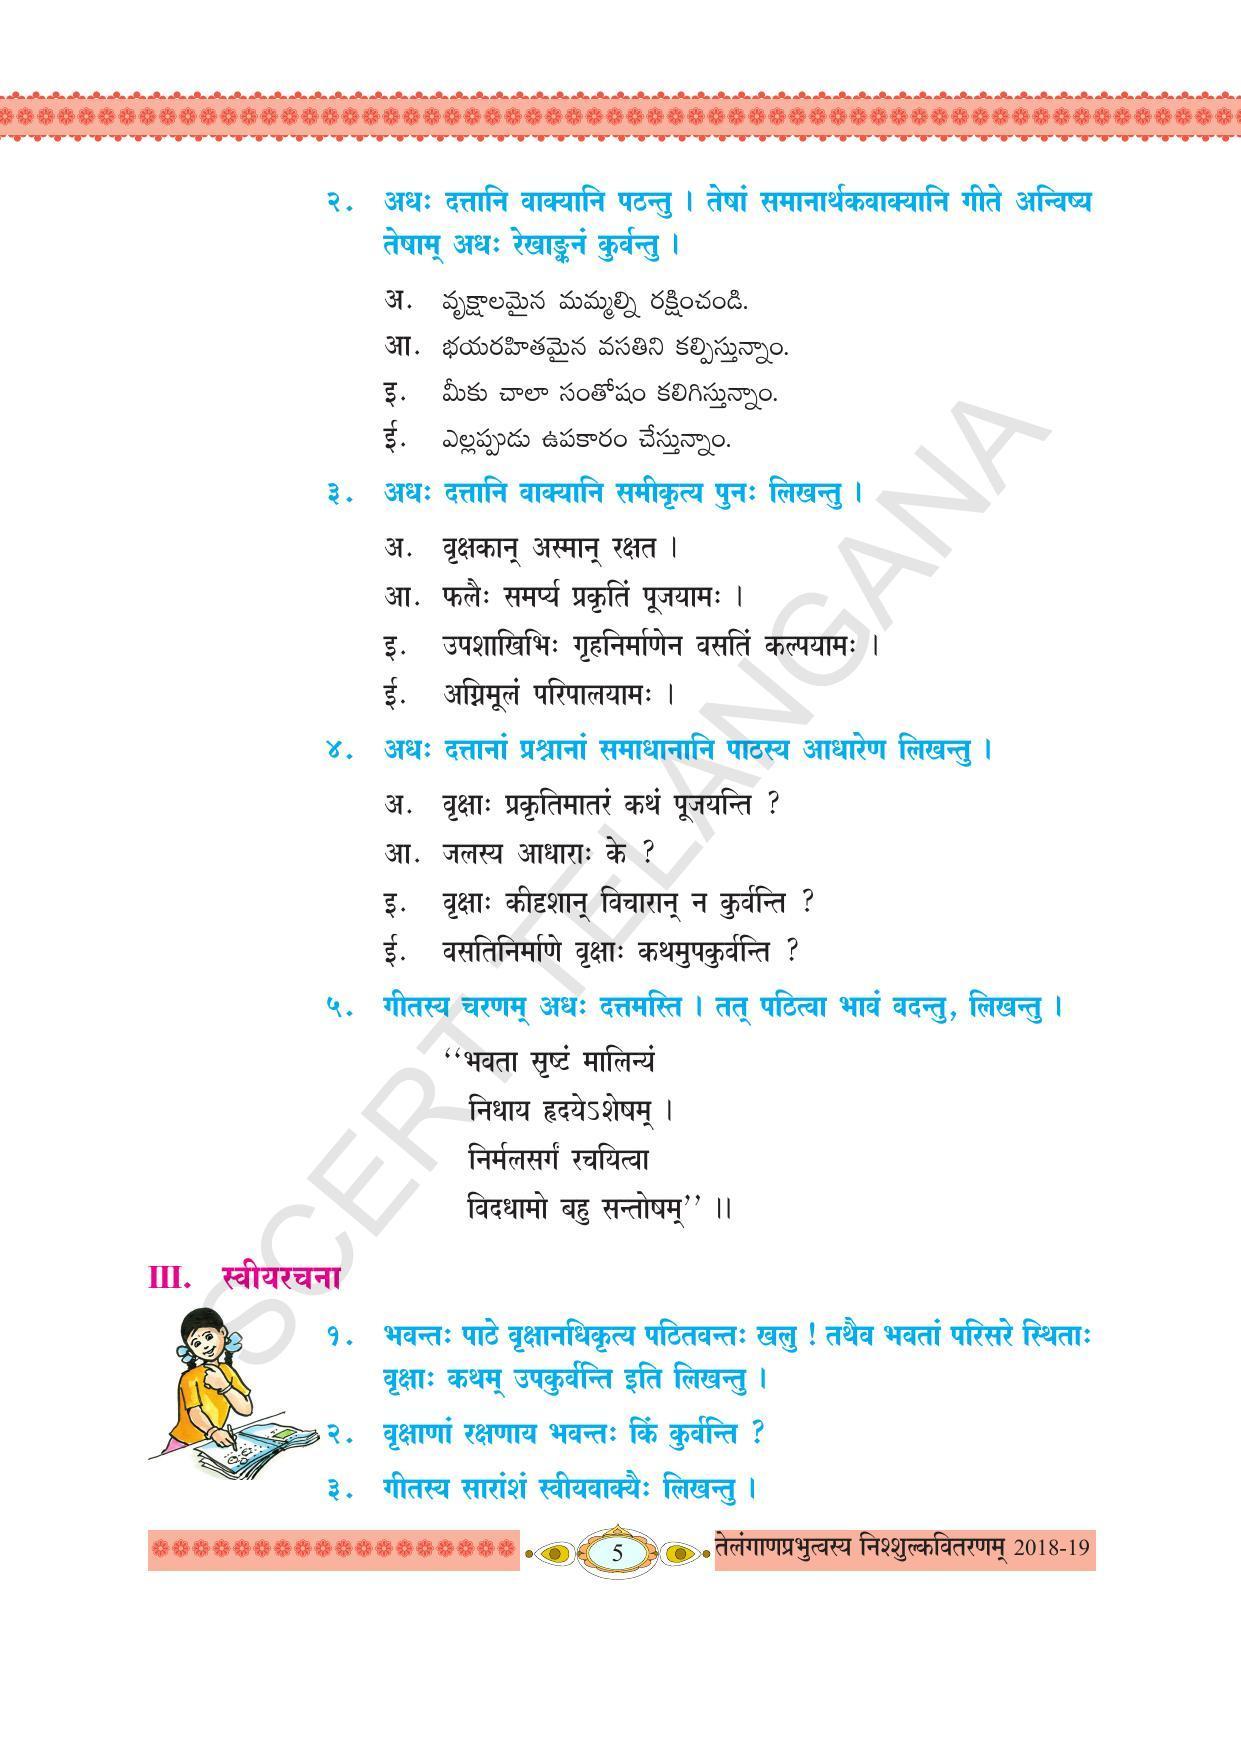 २. अधः दत्तानि वाक्यानि पठन्तु । तेषां समानार्थकवाक्यानि गीते अन्विष्य
तेषाम् अधः रेखाङ्कनं कुर्वन्तु ।
अ. వృక్షాలమైన మమ్మల్ని రక్షించండి.
आ. భయరహితమైన వసతిని కల్పిస్తున్నాం.
इ. మీకు చాలా సంతోషం కలిగిస్తున్నాం.
ई. ఎల్లప్పుడు ఉపకారం చేస్తున్నాం.
३. अधः दत्तानि वाक्यानि समीकृत्य पुनः लिखन्तु ।
अ. वृक्षकान् अस्मान् रक्षत ।
आ. फलैः समर्प्य प्रकृतिं पूजयामः ।
इ. उपशाखिभिः गृहनिर्माणेन वसतिं कल्पयामः ।
ई. अग्निमूलं परिपालयामः ।
४. अधः दत्तानां प्रश्नानां समाधानानि पाठस्य आधारेण लिखन्तु ।
अ. वृक्षाः प्रकृतिमातरं कथं पूजयन्ति ?
आ. जलस्य आधाराः के ?
इ. वृक्षाः कीदृशान् विचारान् न कुर्वन्ति ?
ई. वसतिनिर्माणे वृक्षाः कथमुपकुर्वन्ति ?
५. गीतस्य चरणम् अधः दत्तमस्ति । तत् पठित्वा भावं वदन्तु, लिखन्तु ।
‘‘भवता सृष्टं मालिन्यं
निधाय हृदयेऽशेषम् ।
निर्मलसर्गं रचयित्वा
विदधामो बहु सन्तोषम्’’ ।।
III. स्वीयरचना
१. भवन्तः पाठे वृक्षानधिकृत्य पठितवन्तः खलु ! तथैव भवतां परिसरे स्थिताः
वृक्षाः कथम् उपकुर्वन्ति इति लिखन्तु ।
२. वृक्षाणां रक्षणाय भवन्तः किं कुर्वन्ति ?
३. गीतस्य सारांशं स्वीयवाक्यैः लिखन्तु ।
5 तेलंगाणप्रभुत्वस्य निश्शुल्कवितरणम् 2018-19
SCERT TELANGANA